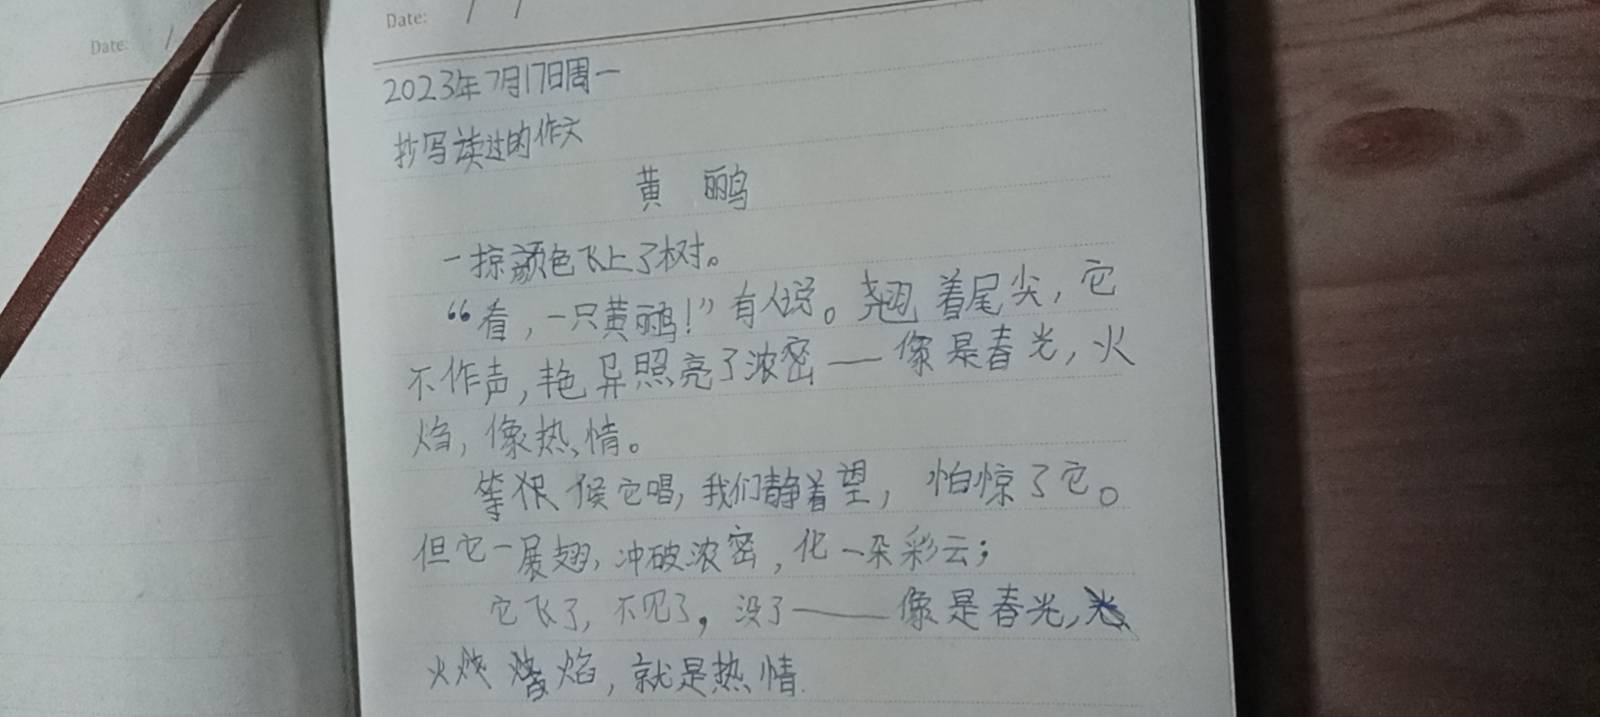 Date: /
Date: / /
2023年7月17日周一
抄写读过的作文
黄 鹂
一掠颜色飞上了树。
“看,一只黄鹂!”有人说。翘着尾尖,它
不作声,艳异照亮了浓密——像是春光,火
焰,像热情。
等候它唱,我们静着望,怕惊了它。
但它一展翅,冲破浓密,化一朵彩云;
它飞了,不见了,没了——像是春光,
火烧 焰,就是热情.